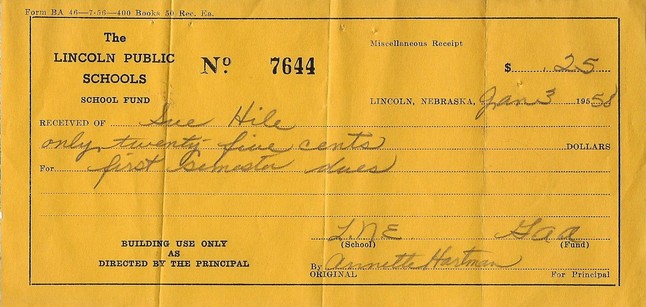 Form BA 46—7-56—400 Books 50 Rec. Ea.
The
LINCOLN PUBLIC
SCHOOLS
SCHOOL FUND
No. 7644
Miscellaneous Receipt
$ .25
LINCOLN, NEBRASKA, Jan 3 1958
RECEIVED OF Sue Hile
only twenty five cents DOLLARS
For first semester dues
LNE Gaa
(School) (Fund)
BUILDING USE ONLY
AS
DIRECTED BY THE PRINCIPAL
By Annette Hartman
ORIGINAL For Principal